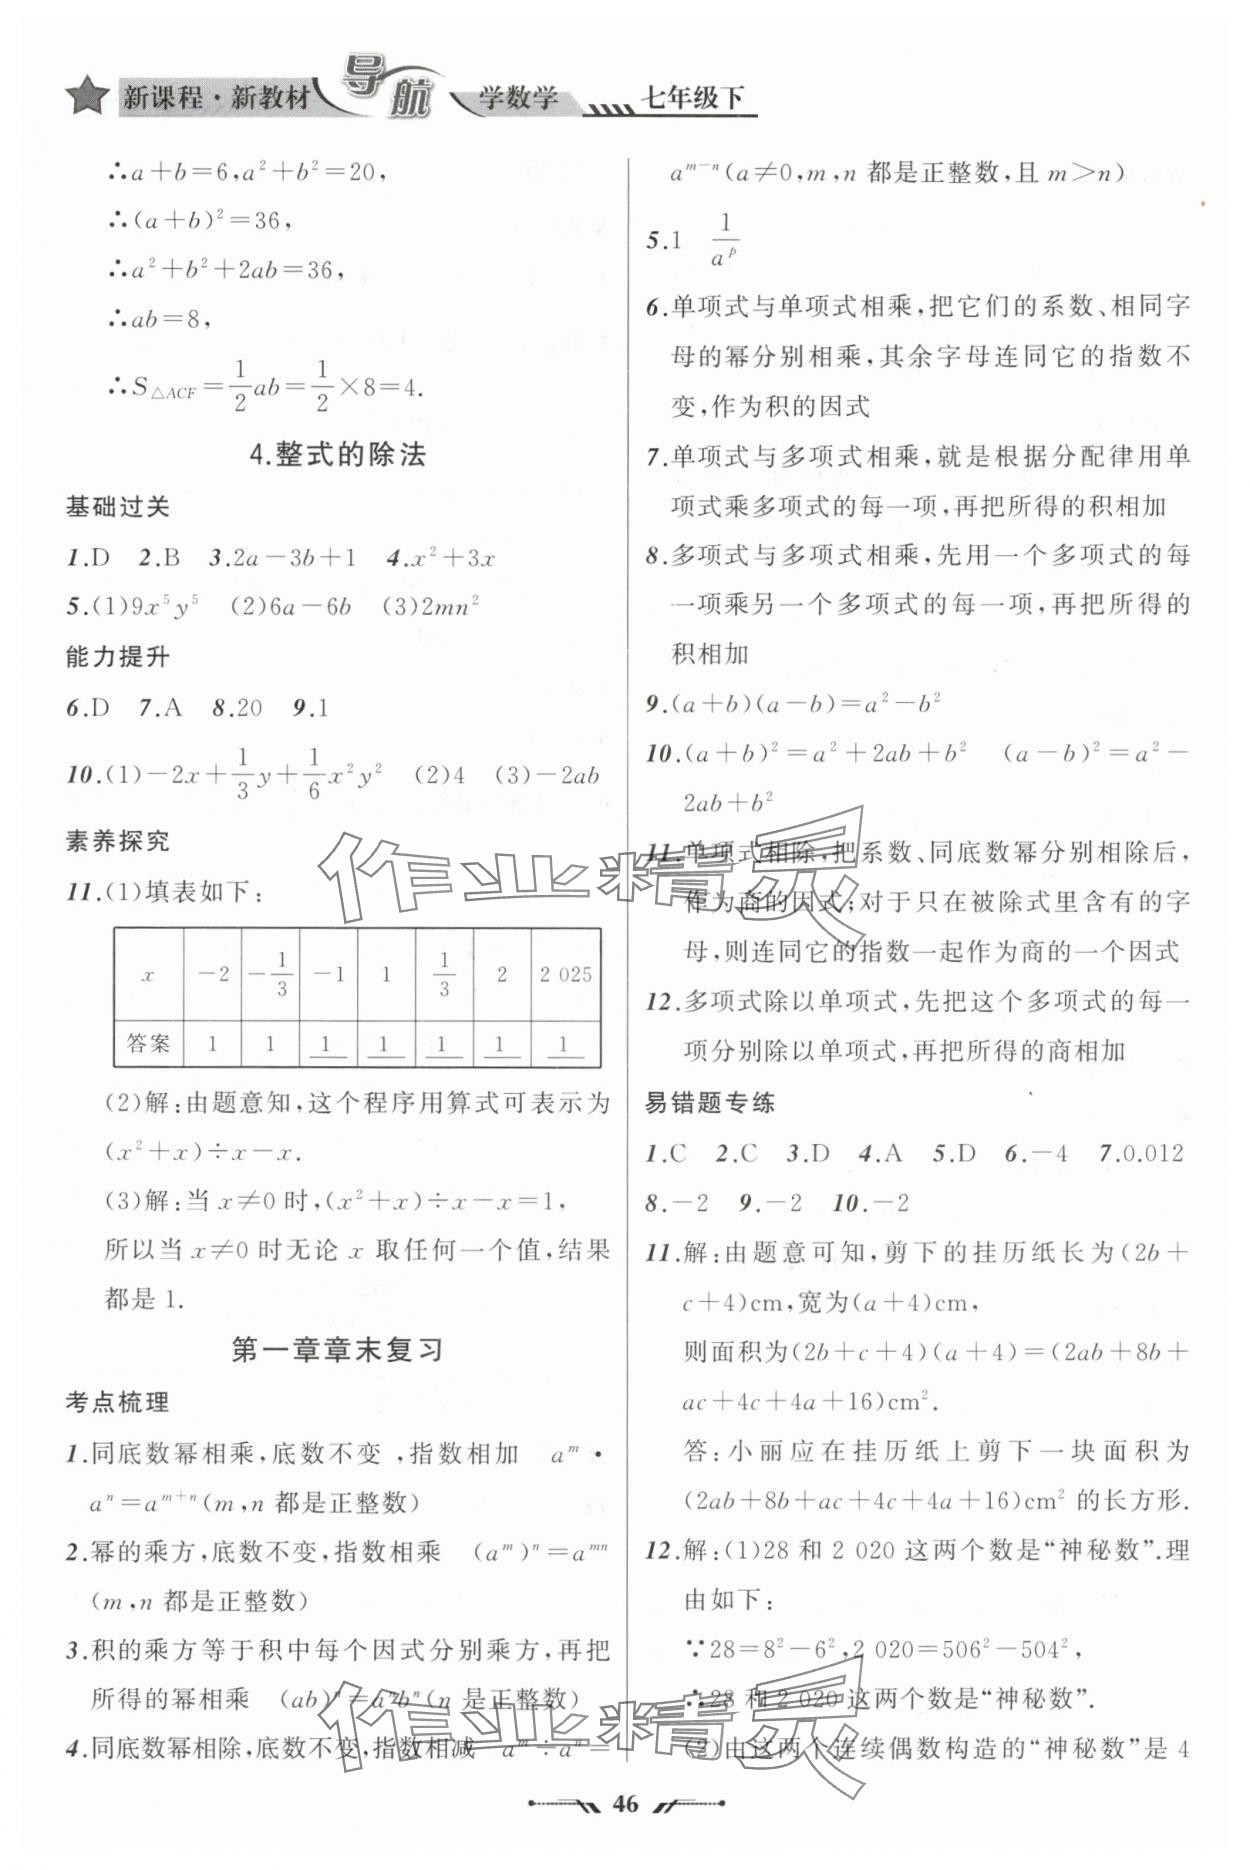 新课程·新教材 导航 学数学 七年级下
∴a+b=6,a²+b²=20,
∴(a+b)²=36,
∴a²+b²+2ab=36,
∴ab=8,
∴S△ACF=1/2ab=1/2×8=4.
4.整式的除法
基础过关
1.D 2.B 3.2a-3b+1 4.x²+3x
5.(1)9x⁵y⁵ (2)6a-6b (3)2mn²
能力提升
6.D 7.A 8.20 9.1
10.(1)-2x+1/3y+1/6x²y² (2)4 (3)-2ab
素养探究
11.(1)填表如下:
x -2 -1/3 -1 1 1/3 2 2 025
答案 1 1 1 1 1 1 1
(2)解:由题意知,这个程序用算式可表示为
(x²+x)÷x-x.
(3)解:当x≠0时,(x²+x)÷x-x=1,
所以当x≠0时无论x取任何一个值,结果
都是1.
第一章章末复习
考点梳理
1.同底数幂相乘,底数不变,指数相加 aᵐ·
aⁿ=aᵐ⁺ⁿ(m,n都是正整数)
2.幂的乘方,底数不变,指数相乘 (aᵐ)ⁿ=aᵐⁿ
(m,n都是正整数)
3.积的乘方等于积中每个因式分别乘方,再把
所得的幂相乘 (ab)ⁿ=aⁿbⁿ(n是正整数)
4.同底数幂相除,底数不变,指数相减 aᵐ÷aⁿ=
aᵐ⁻ⁿ(a≠0,m,n都是正整数,且m>n)
5.1 1/aᵖ
6.单项式与单项式相乘,把它们的系数、相同字
母的幂分别相乘,其余字母连同它的指数不
变,作为积的因式
7.单项式与多项式相乘,就是根据分配律用单
项式乘多项式的每一项,再把所得的积相加
8.多项式与多项式相乘,先用一个多项式的每
一项乘另一个多项式的每一项,再把所得的
积相加
9.(a+b)(a-b)=a²-b²
10.(a+b)²=a²+2ab+b² (a-b)²=a²-
2ab+b²
11.单项式相除,把系数、同底数幂分别相除后,
作为商的因式;对于只在被除式里含有的字
母,则连同它的指数一起作为商的一个因式
12.多项式除以单项式,先把这个多项式的每一
项分别除以单项式,再把所得的商相加
易错题专练
1.C 2.C 3.D 4.A 5.D 6.-4 7.0.012
8.-2 9.-2 10.-2
11.解:由题意可知,剪下的挂历纸长为(2b+
c+4)cm,宽为(a+4)cm,
则面积为(2b+c+4)(a+4)=(2ab+8b+
ac+4c+4a+16)cm².
答:小丽应在挂历纸上剪下一块面积为
(2ab+8b+ac+4c+4a+16)cm²的长方形.
12.解:(1)28和2 020这两个数是“神秘数”.理
由如下:
∵28=8²-6²,2 020=506²-504²,
∴28和2 020这两个数是“神秘数”.
(2)由这两个连续偶数构造的“神秘数”是4
作业精灵
作业精灵
46